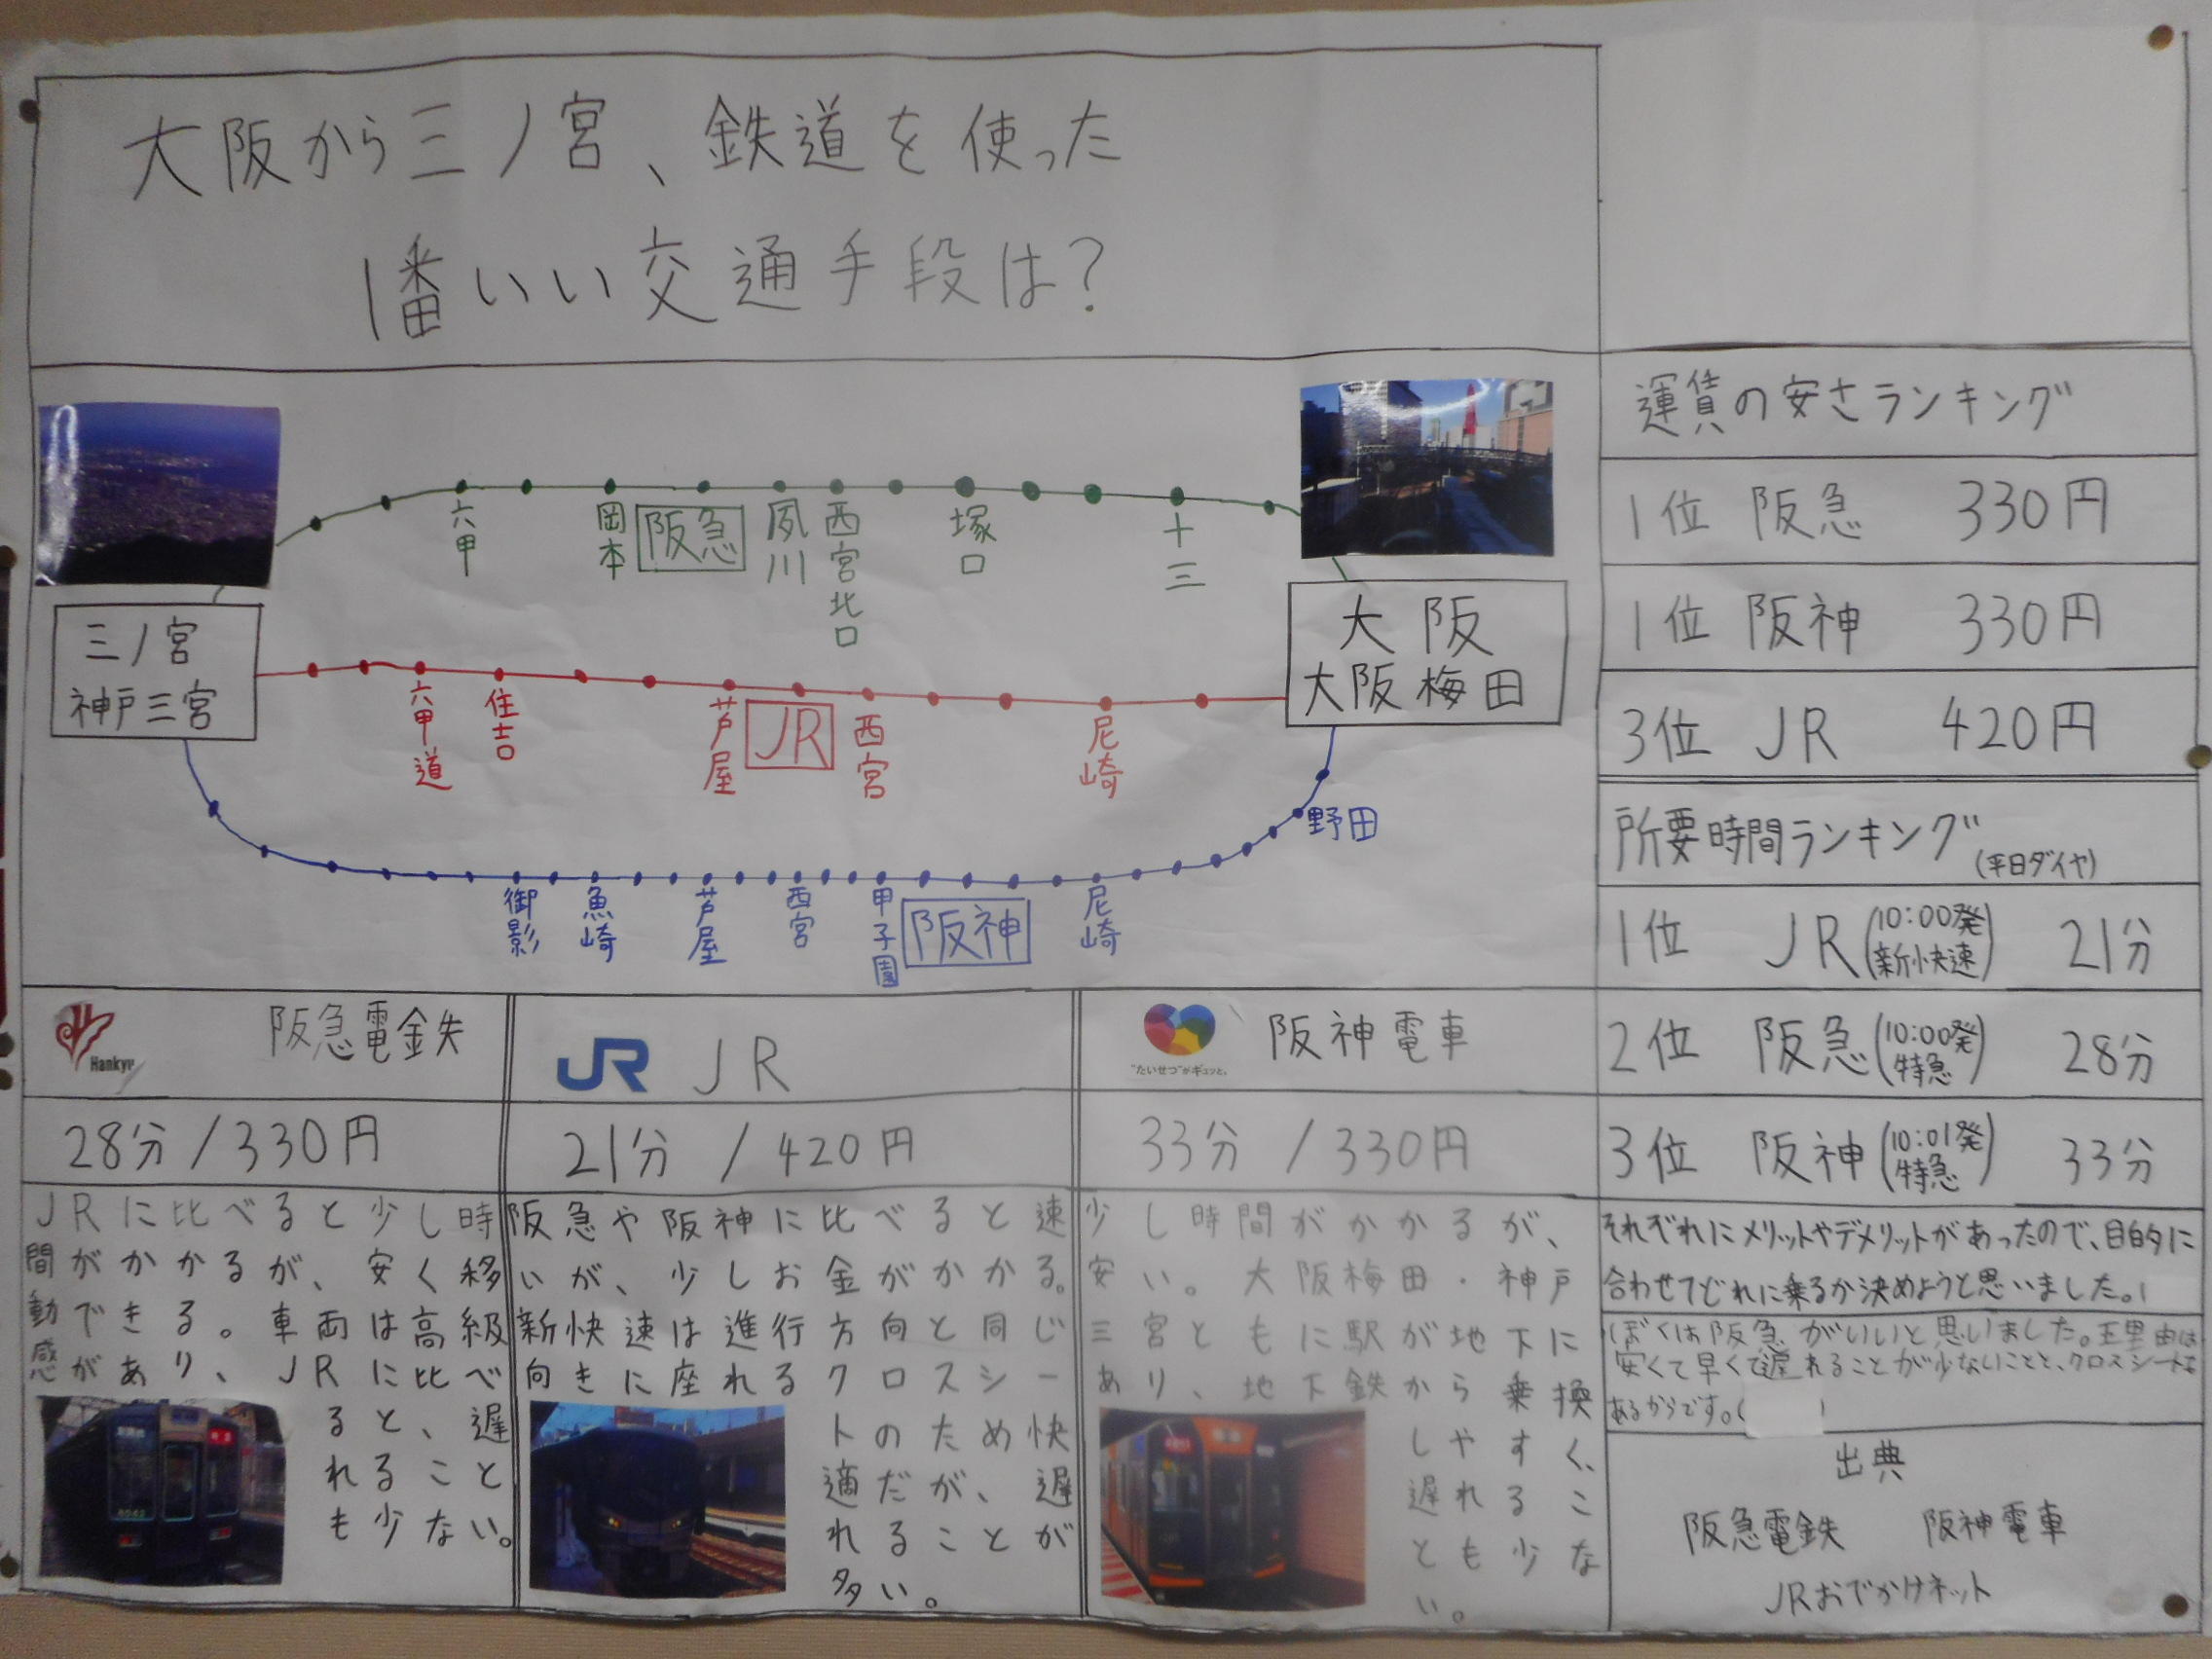 大阪から三ノ宮、鉄道を使った
1番いい交通手段は?
六甲
岡本
阪急
夙川
西宮北口
塚口
十三
三ノ宮
神戸三宮
大阪
大阪梅田
六甲道
住吉
芦屋
JR
西宮
尼崎
野田
御影
魚崎
芦屋
西宮
甲子園
阪神
尼崎
運賃の安さランキング
1位 阪急 330円
1位 阪神 330円
3位 JR 420円
所要時間ランキング
(平日ダイヤ)
1位 JR (10:00発 新快速) 21分
2位 阪急 (10:00発 特急) 28分
3位 阪神 (10:01発 特急) 33分
Hankyu
阪急電鉄
28分/330円
JRに比べると少し時
間がかかるが、安く移
動できる。車両は高級
感があり、JRに比べ
ると、遅
れること
も少ない。
JR
JR
21分/420円
阪急や阪神に比べると速
いが、少しお金がかかる。
新快速は進行方向と同じ
向きに座れるクロスシー
トのため快
適だが、遅
れることが
多い。
"たいせつ"がギュッと。
阪神電車
33分/330円
少し時間がかかるが、
安い。大阪梅田・神戸
三宮ともに駅が地下に
あり、地下鉄から乗換
しやすく、
遅れるこ
とも少な
い。
それぞれにメリットやデメリットがあったので、目的に
合わせてどれに乗るか決めようと思いました。
ぼくは阪急がいいと思いました。理由は
安くて早くて遅れることが少ないことと、クロスシートも
あるからです。(  )
出典
阪急電鉄 阪神電車
JRおでかけネット